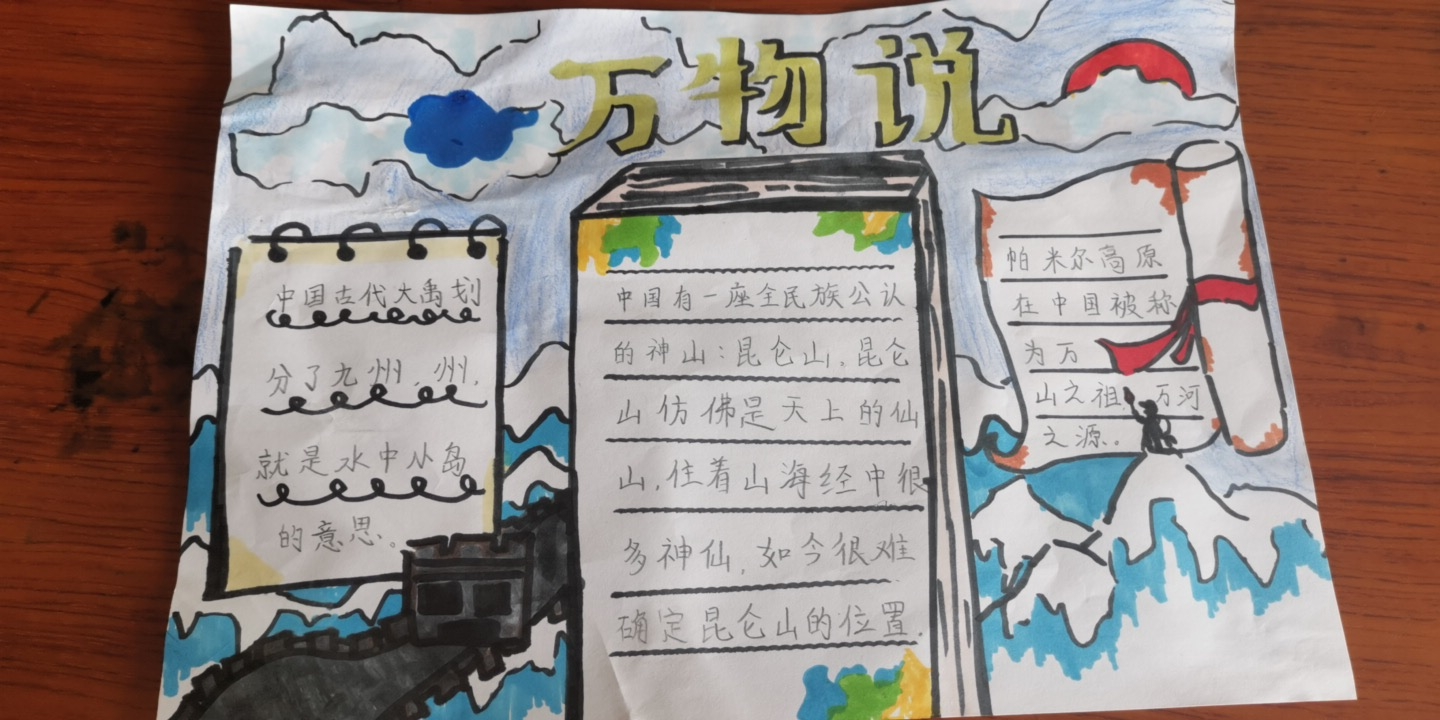 万物说
中国古代大禹划
分了九州，州，
就是水中小岛
的意思。
中国有一座全民族公认
的神山：昆仑山，昆仑
山仿佛是天上的仙
山，住着山海经中很
多神仙，如今很难
确定昆仑山的位置．
帕米尔高原
在中国被称
为万
山之祖，万河
之源。